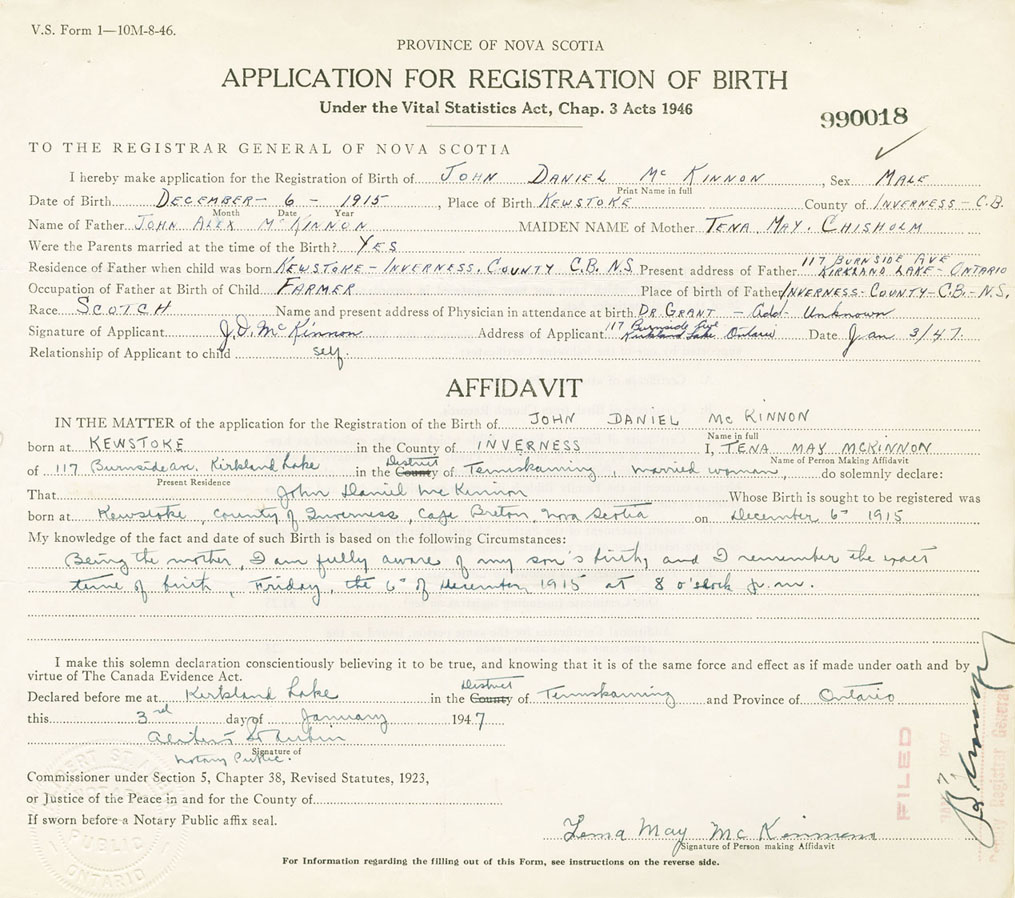 V.S. Form 1—10M-8-46.
PROVINCE OF NOVA SCOTIA
APPLICATION FOR REGISTRATION OF BIRTH
Under the Vital Statistics Act, Chap. 3 Acts 1946
990018
TO THE REGISTRAR GENERAL OF NOVA SCOTIA
I hereby make application for the Registration of Birth of JOHN DANIEL McKINNON, Sex MALE
Print Name in full
Date of Birth DECEMBER - 6 - 1915, Place of Birth KEWSTOKE County of INVERNESS - C.B.
Month Date Year
Name of Father JOHN ALEX McKINNON MAIDEN NAME of Mother TENA MAY. CHISHOLM
Were the Parents married at the time of the Birth? YES
117 BURNSIDE AVE
Residence of Father when child was born KEWSTOKE - INVERNESS. COUNTY C.B. N.S. Present address of Father KIRKLAND LAKE - ONTARIO
Occupation of Father at Birth of Child FARMER Place of birth of Father INVERNESS - COUNTY - C.B. - N.S.
Race SCOTCH Name and present address of Physician in attendance at birth DR GRANT - add - Unknown
117 Burnside Ave
Signature of Applicant J. D. McKinnon Address of Applicant Kirkland Lake Ontario Date Jan 3/47.
Relationship of Applicant to child self.
AFFIDAVIT
IN THE MATTER of the application for the Registration of the Birth of JOHN DANIEL McKINNON
Name in full
born at KEWSTOKE in the County of INVERNESS I, TENA MAY MCKINNON
Name of Person Making Affidavit
District
of 117 Burnside av. Kirkland Lake in the County of Temiskaming, married woman, do solemnly declare:
Present Residence
That John Daniel McKinnon Whose Birth is sought to be registered was
born at Kewstoke, County of Inverness, Cape Breton, Nova Scotia on December 6th 1915
My knowledge of the fact and date of such Birth is based on the following Circumstances:
Being the mother, I am fully aware of my son's birth, and I remember the exact
time of birth, Friday, the 6th of December, 1915 at 8 o'clock p.m.
I make this solemn declaration conscientiously believing it to be true, and knowing that it is of the same force and effect as if made under oath and by
virtue of The Canada Evidence Act.
District
Declared before me at Kirkland Lake in the County of Temiskaming and Province of Ontario
this 3rd day of January 1947
Signature of
Notary Public.
Commissioner under Section 5, Chapter 38, Revised Statutes, 1923,
or Justice of the Peace in and for the County of
If sworn before a Notary Public affix seal.
NOTARY
PUBLIC
ONTARIO
Tena May McKinnon
Signature of Person making Affidavit
For Information regarding the filling out of this Form, see instructions on the reverse side.
FILED
Deputy Registrar General